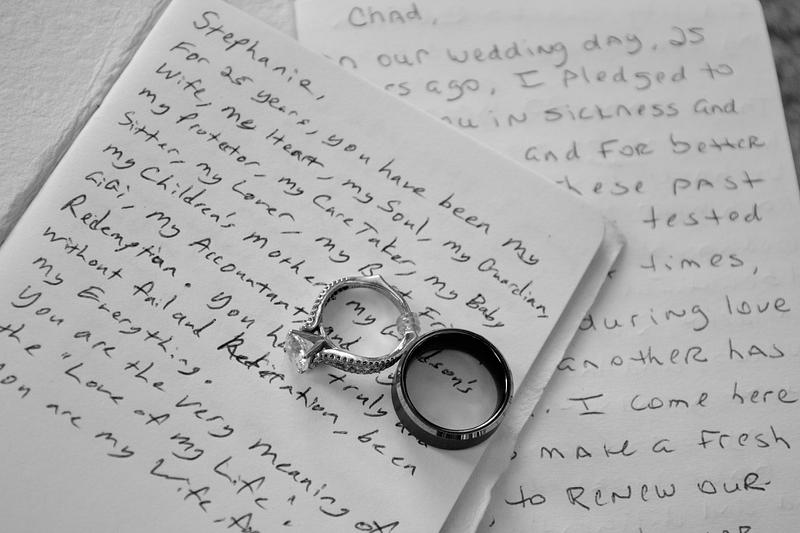 Stephanie,
For 25 years, you have been my
Wife, my Heart, my Soul, my Guardian,
my Protector, my CareTaker, my Baby
Sitter, my Lover, my
my Children's Mother my
GiGi, my Accountant, and
Redemption. You truly and
without fail and been
my Everything.
You are the very meaning of
the "Love of my Life".
You are my Wife,
Chad,
on our wedding day, 25
ago, I pledged to
in sickness and
and for better
these past
tested
times,
during love
another has
. I come here
make a fresh
to renew our